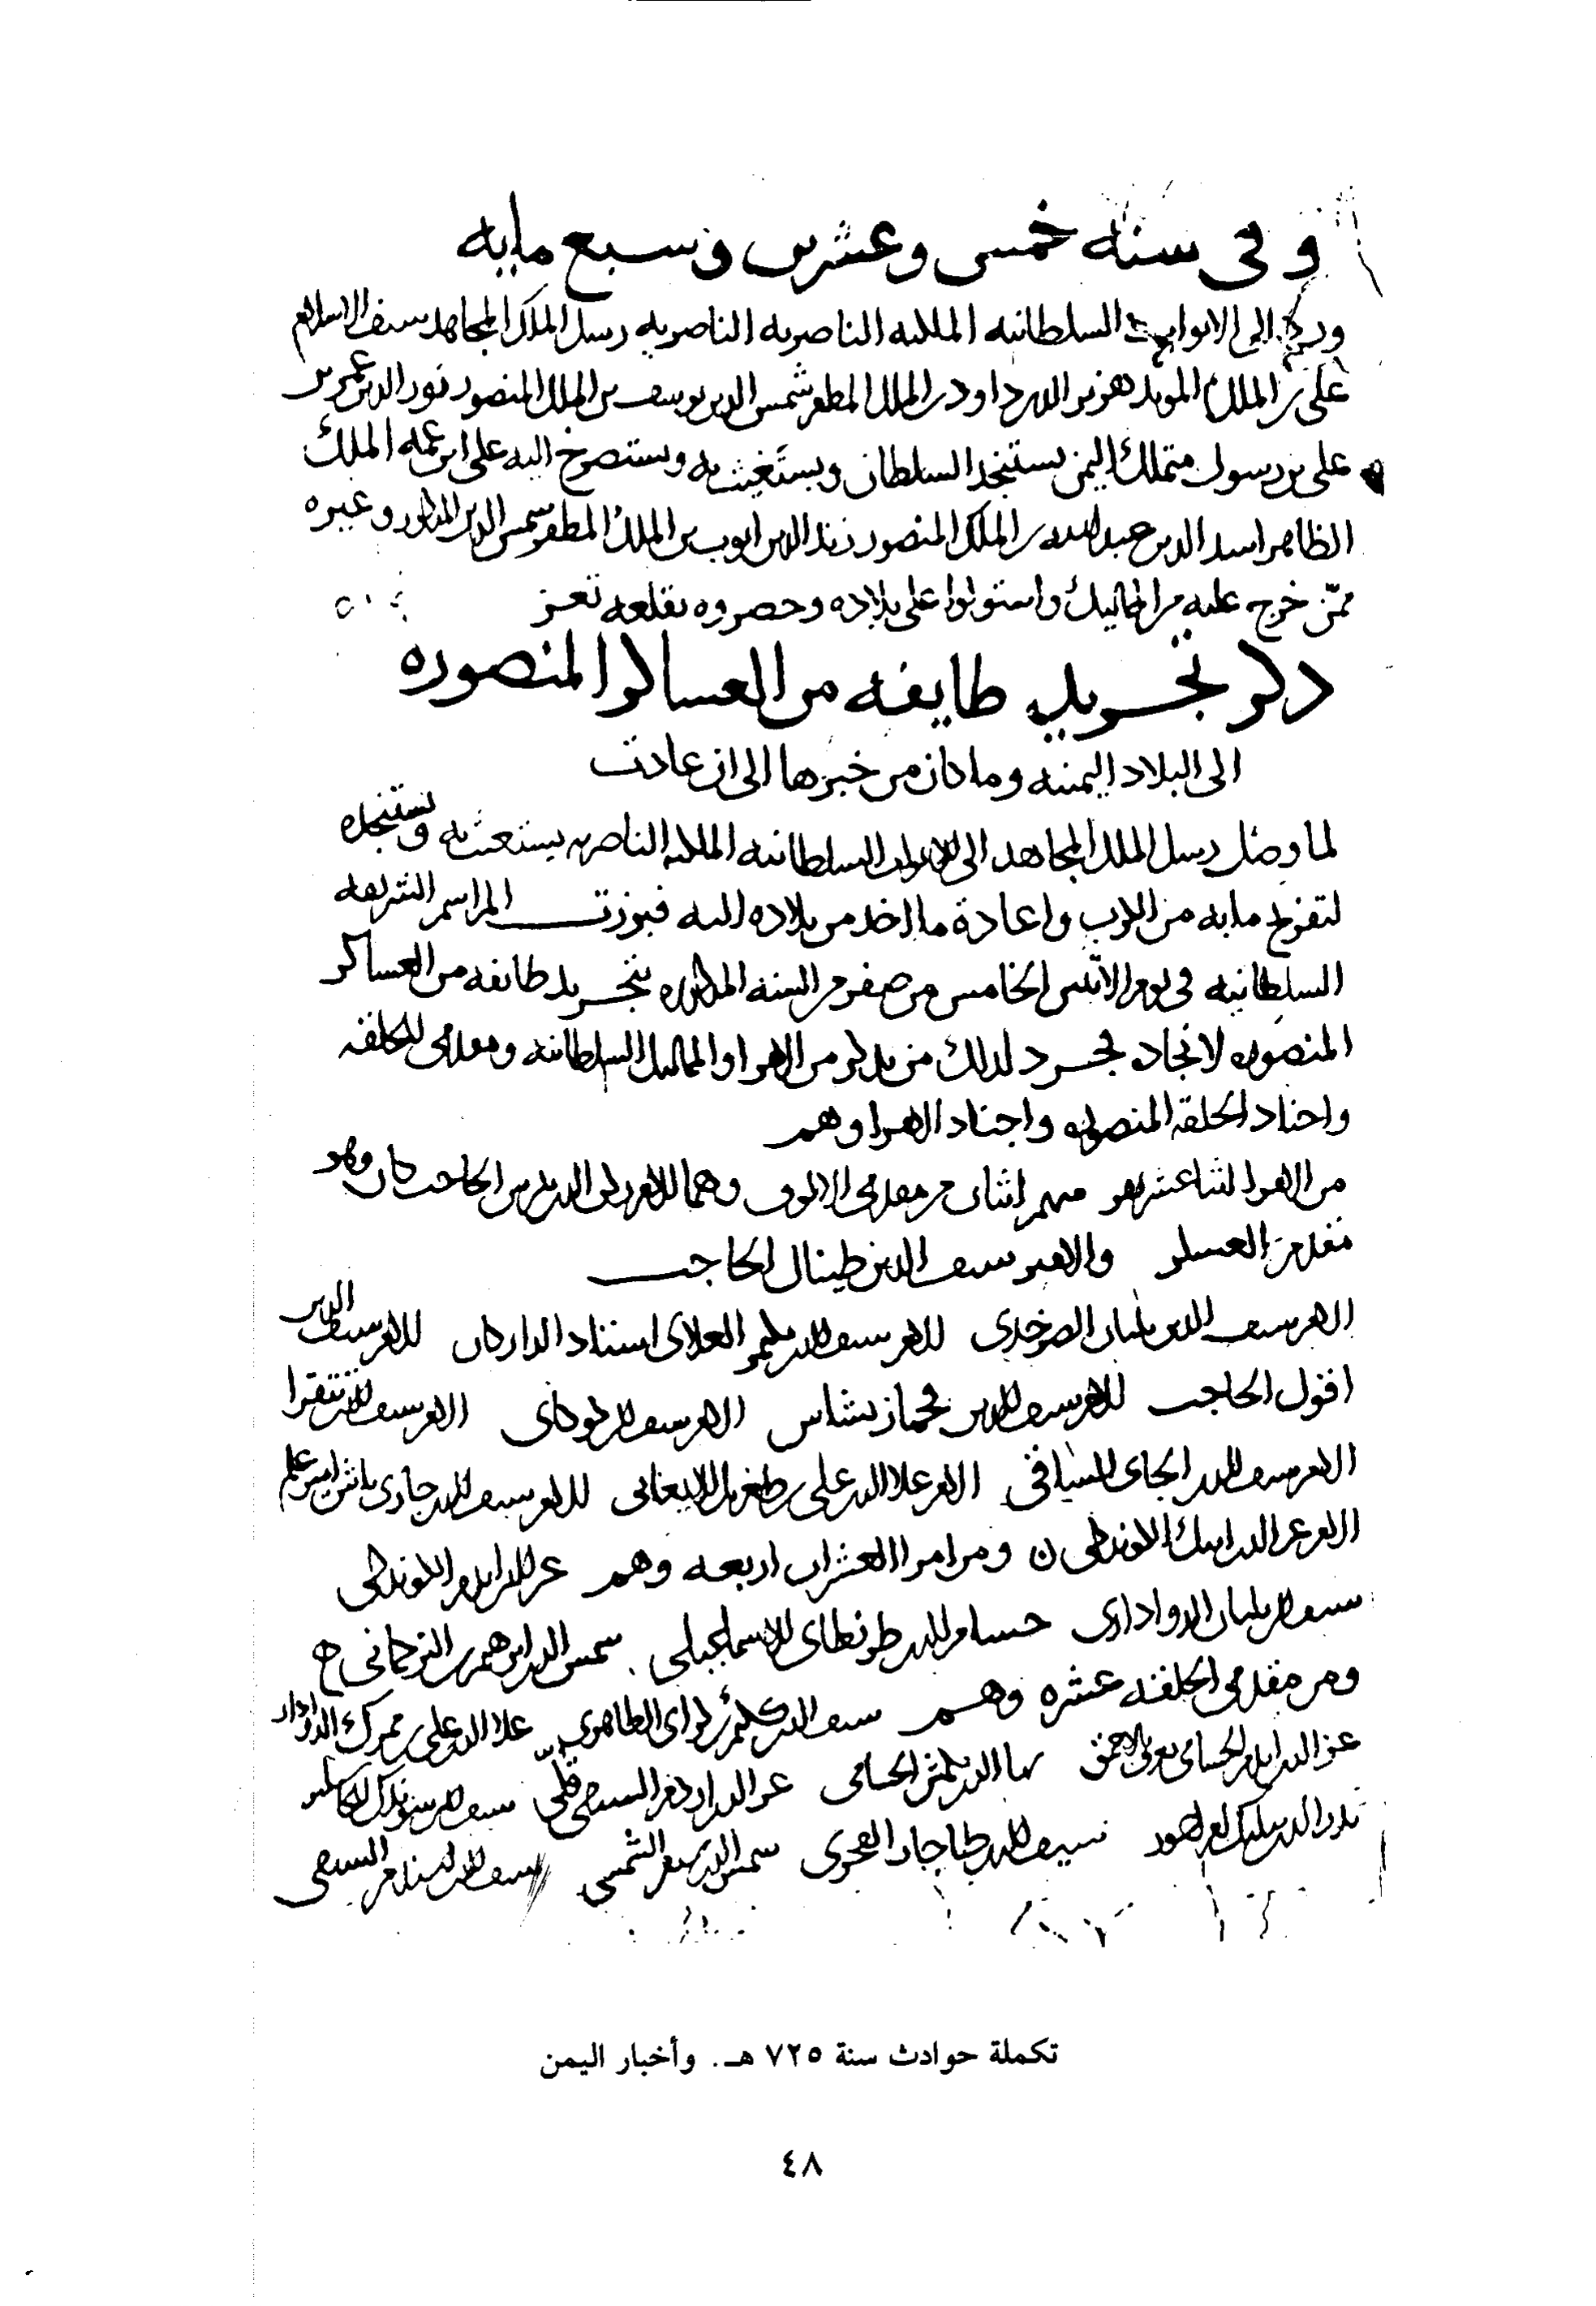 وفى سنه خمس وعشرين وسبع مايه
ورد الى الابواب السلطانيه الملكيه الناصريه الناصريه رسل الملك المجاهد سيف الاسلام
على بن الملك المويد هزبر الدين داود بن الملك المظفر شمس الدين يوسف بن الملك المنصور نور الدين عمر بن
على بن رسول متملك اليمن يستنجد السلطان ويستغيث به ويستصرخ اليه على ابن عمه الملك
الظاهر اسد الدين عبد الله بن الملك المنصور زين الدين ايوب بن الملك المظفر شمس الدين المذكور وغيره
ممّن خرج عليه من المماليك واستولوا على بلاده وحصروه بقلعه تعز
ذكر تجريد طايفه من العساكر المنصوره
الى البلاد اليمنيه وما كان من خبرها الى ان عادت
لما وصل رسل الملك المجاهد الى الابواب السلطانيه الملكيه الناصريه يستغيث به ويستنجده
لتفريج ما به من الكرب واعادة ما اخذ من بلاده اليه فبرزت المراسم الشريفه
السلطانيه فى يوم الاثنين الخامس من صفر من السنه المذكوره بتجريد طايفه من العساكر
المنصوره لانجاده فجرد لذلك من يذكر من الامرا والمماليك السلطانيه ومقدمى الحلقه
واجناد الحلقه المنصوره واجناد الامرا وهم
من الامرا اثنا عشر امير منهم اثنان من مقدمى الالوف وهما الامير ركن الدين بيبرس الحاجب كان وهو
مقدم العسكر والامير سيف الدين طينال الحاجب
الامير سيف الدين بلبان الصرخدى الامير سيف الدين بكتمر العلاى استاد الدار كان الامير سيف الدين
اقول الحاجب الامير سيف الدين قجماز بشاش الامير سيف الدين كوكاى الامير سيف الدين ططقرا
الامير سيف الدين الجاى الساقى الامير علا الدين على بن طغريل الايغانى الامير سيف الدين جاريك باش امير علم
الامير عز الدين ايبك الكوندكى ومن امرا العشرات اربعه وهم عز الدين ايدمر الكوندكى
سيف الدين بلبان الدوادارى حسام الدين طرنطاى الاسماعيلى شمس الدين ابرهيم بن التركمانى
ومن مقدمى الحلقه عشره وهم سيف الدين الظاهرى علا الدين على الدوادار
عز الدين ايدمر الحسامى بها الدين الحسامى عز الدين السيفى سيف الدين
بدر الدين سيف الدين طاجار الفخرى شمس الدين سنقر الشمسى سيف الدين السيفى
تكملة حوادث سنة ٧٢٥ هـ. وأخبار اليمن
٤٨